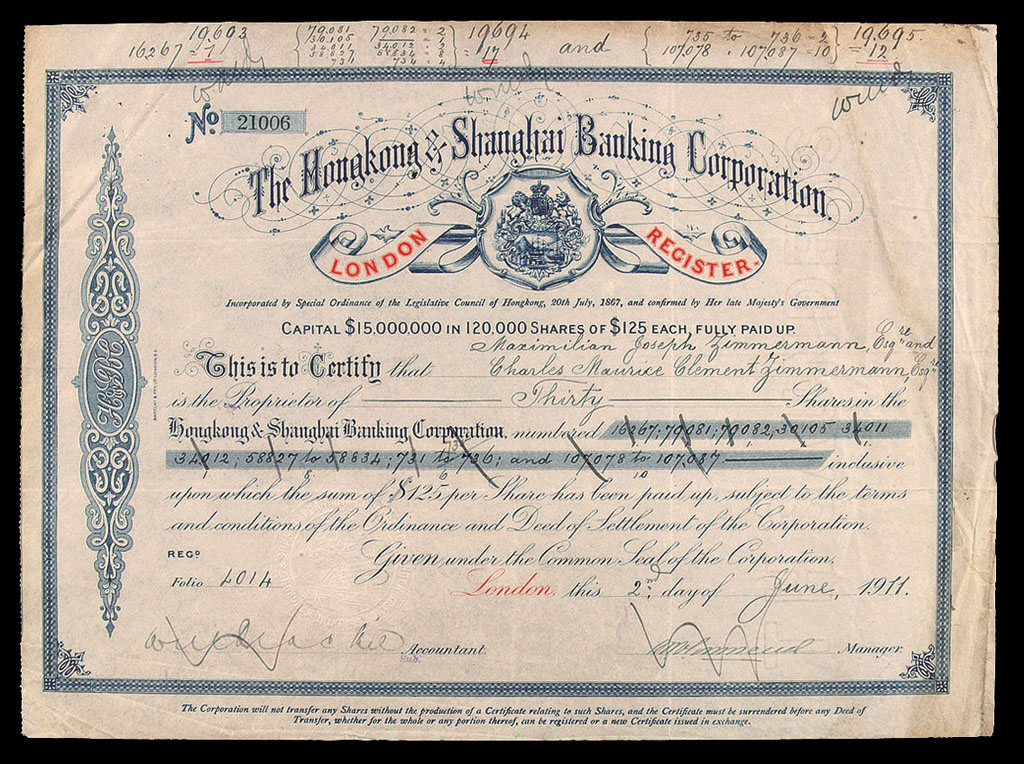 19,603 { 79,081 79,082 = 2 } 19,694 and { 735 to 736 = 2 } 19,695
16267 = 1 30,105 34,011 34,012 58827 58834 = 8 731 734 = 4 = 17 107,078 . 107,087 = 10 = 12
No. 21006
The Hongkong & Shanghai Banking Corporation.
LONDON REGISTER.
Incorporated by Special Ordinance of the Legislative Council of Hongkong, 20th July, 1867, and confirmed by Her late Majesty's Government
CAPITAL $15,000,000 IN 120,000 SHARES OF $125 EACH, FULLY PAID UP.
Maximilian Joseph Zimmermann, Esqre and
This is to Certify that Charles Maurice Clement Zimmermann, Esqre
is the Proprietor of Thirty Shares in the
Hongkong & Shanghai Banking Corporation, numbered 16267; 79081; 79082; 30105 34011
34012; 58827 to 58834; 731 to 736; and 107,078 to 107,087. inclusive
8 6 10
upon which the sum of $125 per Share has been paid up, subject to the terms
and conditions of the Ordinance and Deed of Settlement of the Corporation.
REGD Given under the Common Seal of the Corporation,
Folio 4014 London, this 2nd day of June, 1911.
Accountant. Manager.
Sub.
The Corporation will not transfer any Shares without the production of a Certificate relating to such Shares, and the Certificate must be surrendered before any Deed of
Transfer, whether for the whole or any portion thereof, can be registered or a new Certificate issued in exchange.